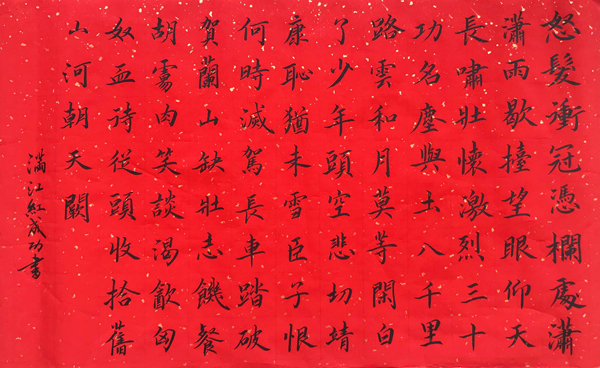 怒髮衝冠憑欄處瀟
瀟雨歇擡望眼仰天
長嘯壯懷激烈三十
功名塵與土八千里
路雲和月莫等閑白
了少年頭空悲切靖
康恥猶未雪臣子恨
何時滅駕長車踏破
賀蘭山缺壯志饑餐
胡虜肉笑談渴飲匈
奴血待從頭收拾舊
山河朝天闕
滿江紅成功書